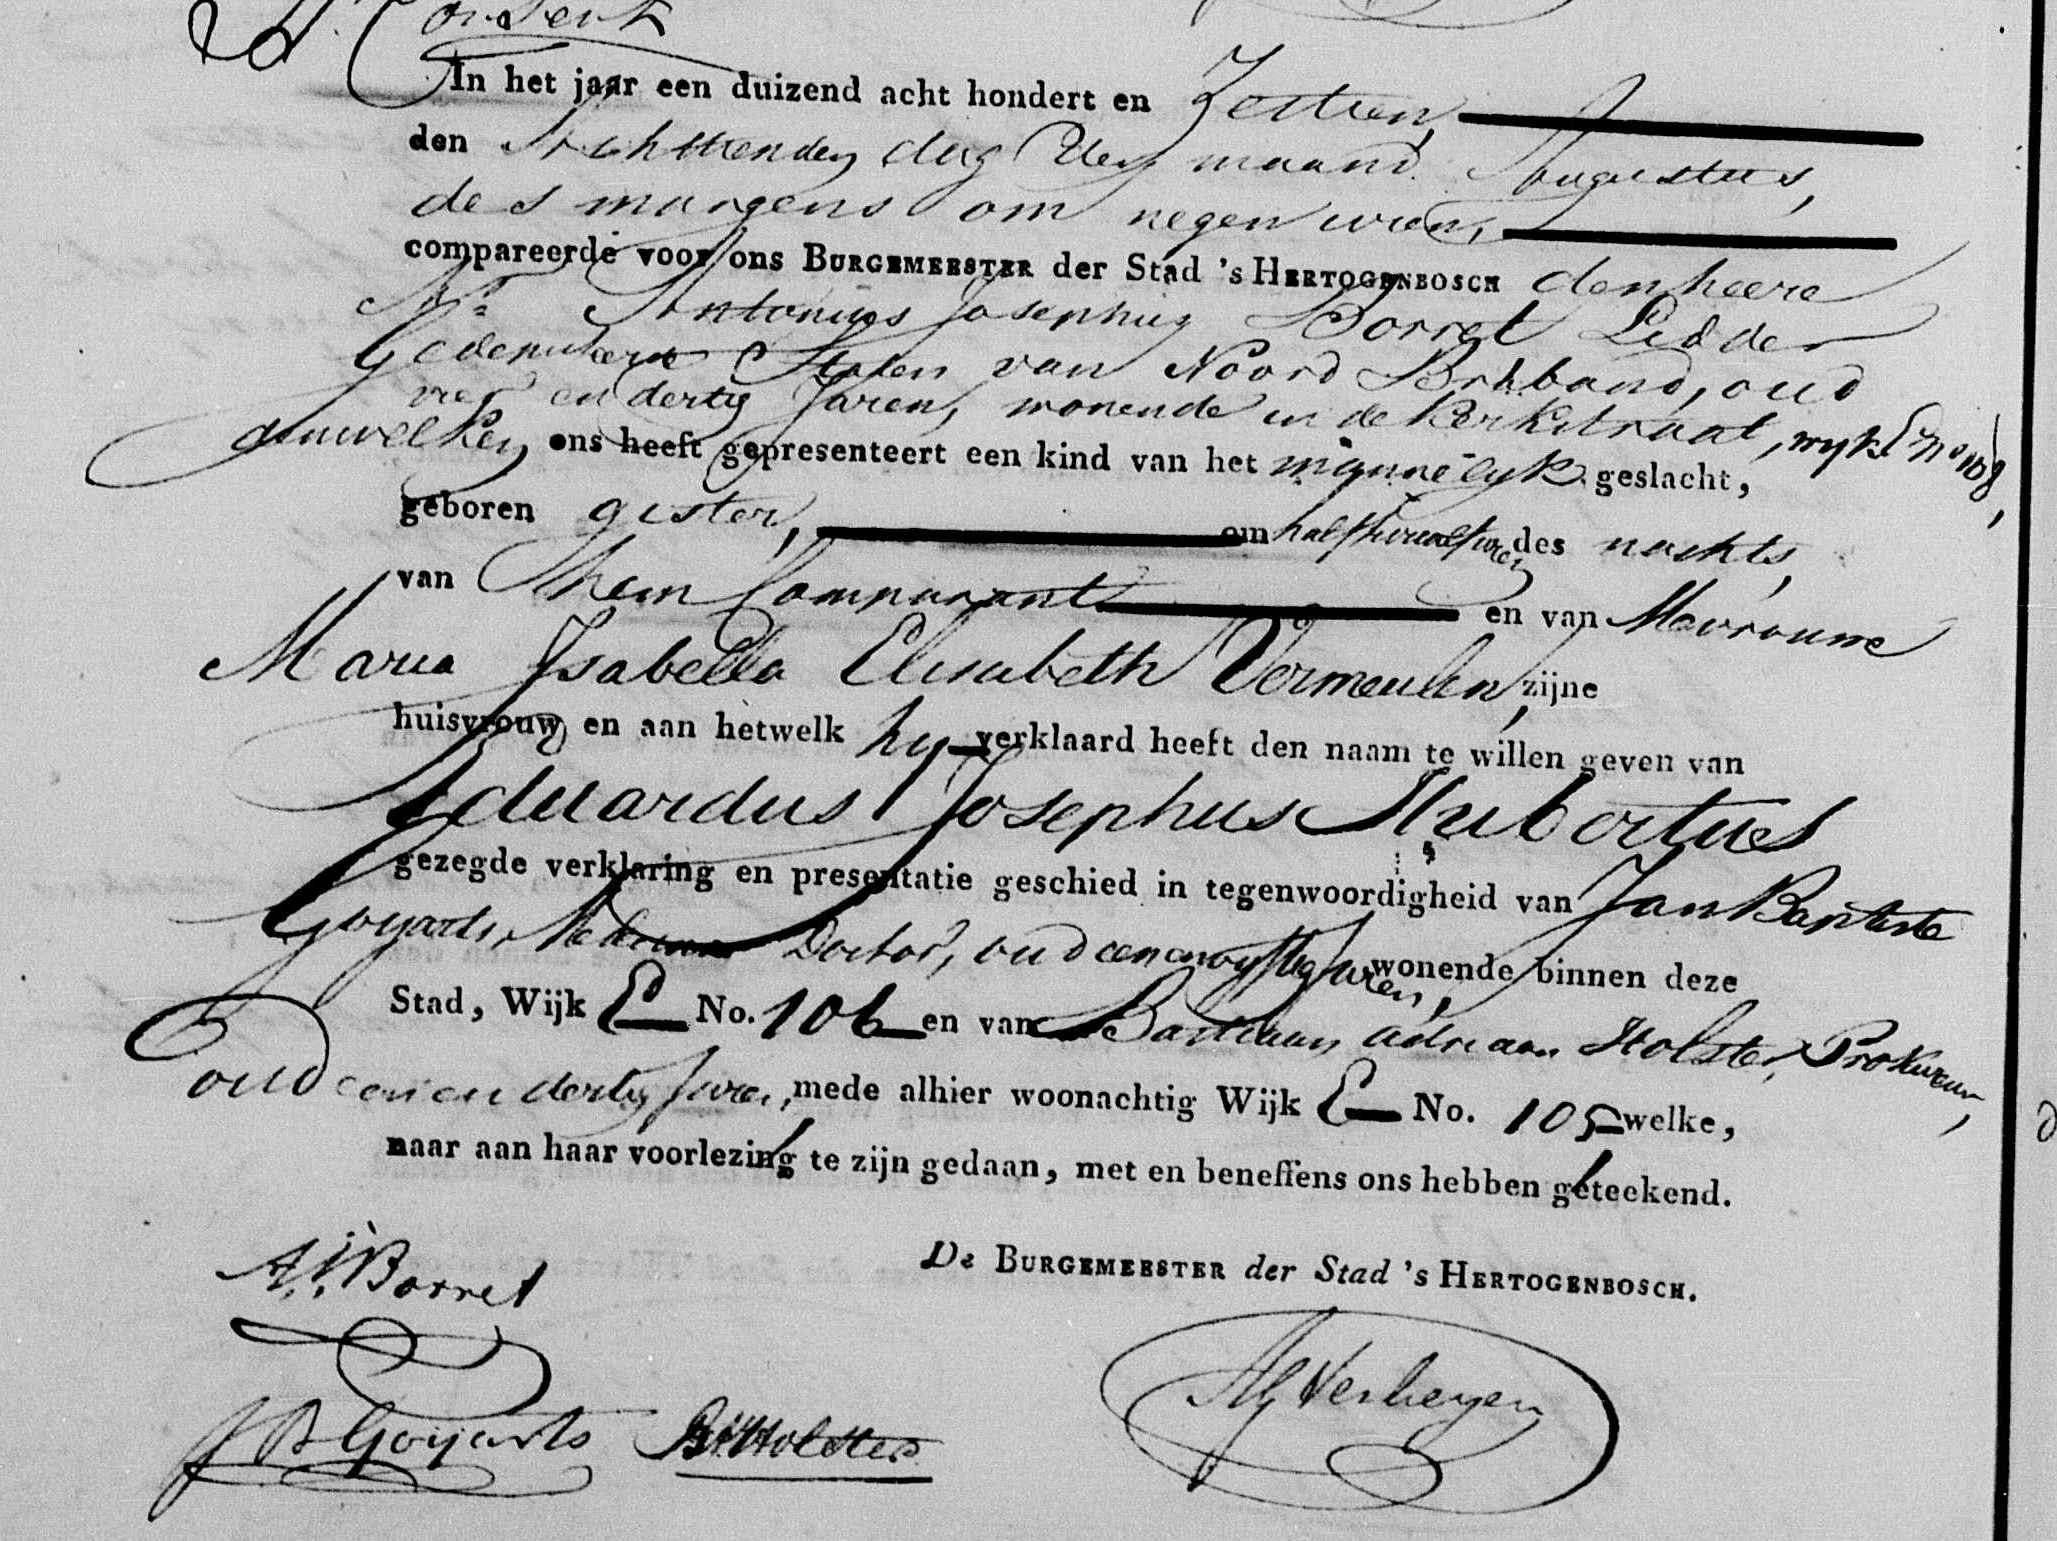 In het jaar een duizend acht hondert en Zestien,
den Achttienden dag der maand Augustus,
des morgens om negen uren,
compareerde voor ons BURGEMEESTER der Stad 's HERTOGENBOSCH den heere
Mr Antonius Josephus Borret Lid der
Gedeputeerde Staten van Noord Braband, oud
vier en dertig Jaren, wonende in de Kerkstraat, wyk E No 108,
dewelke ons heeft gepresenteert een kind van het mannelyk geslacht,
geboren gister, om half twaalf uren des nachts,
van hem Comparant en van Mevrouwe
Maria Isabella Elisabeth Vermeulen, zijne
huisvrouw en aan hetwelk hy verklaard heeft den naam te willen geven van
Eduardus Josephus Hubertus
gezegde verklaring en presentatie geschied in tegenwoordigheid van Jan Baptiste
Goyarts, Medicine Doctor, oud een en vyftig Jaren, wonende binnen deze
Stad, Wijk E No. 106 en van Bastiaan Adriaan Holster, Prokureur,
oud een en dertig Jaren, mede alhier woonachtig Wijk E No. 105 welke,
naar aan haar voorlezing te zijn gedaan, met en beneffens ons hebben geteekend.
De BURGEMEESTER der Stad 's HERTOGENBOSCH.
A. J. Borret
AG Verheyen
J B Goyarts BA Holster